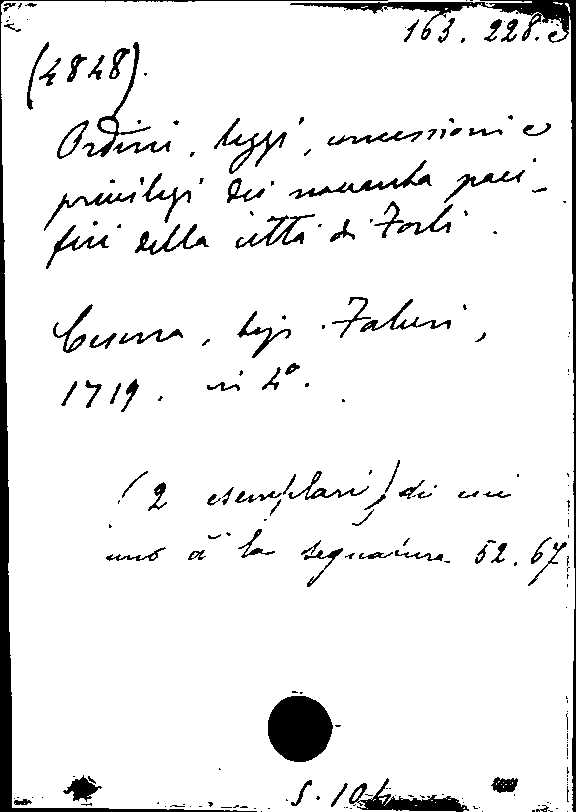 163. 228. c
(4848).
Ordini, leggi, concessioni e
privilegi dei novanta paci-
fici della città di Forlì.
Cesena, tip. Faberi,
1719. in 4º.
(2 esemplari) di cui
uno à la segnatura 52.67
S. 104